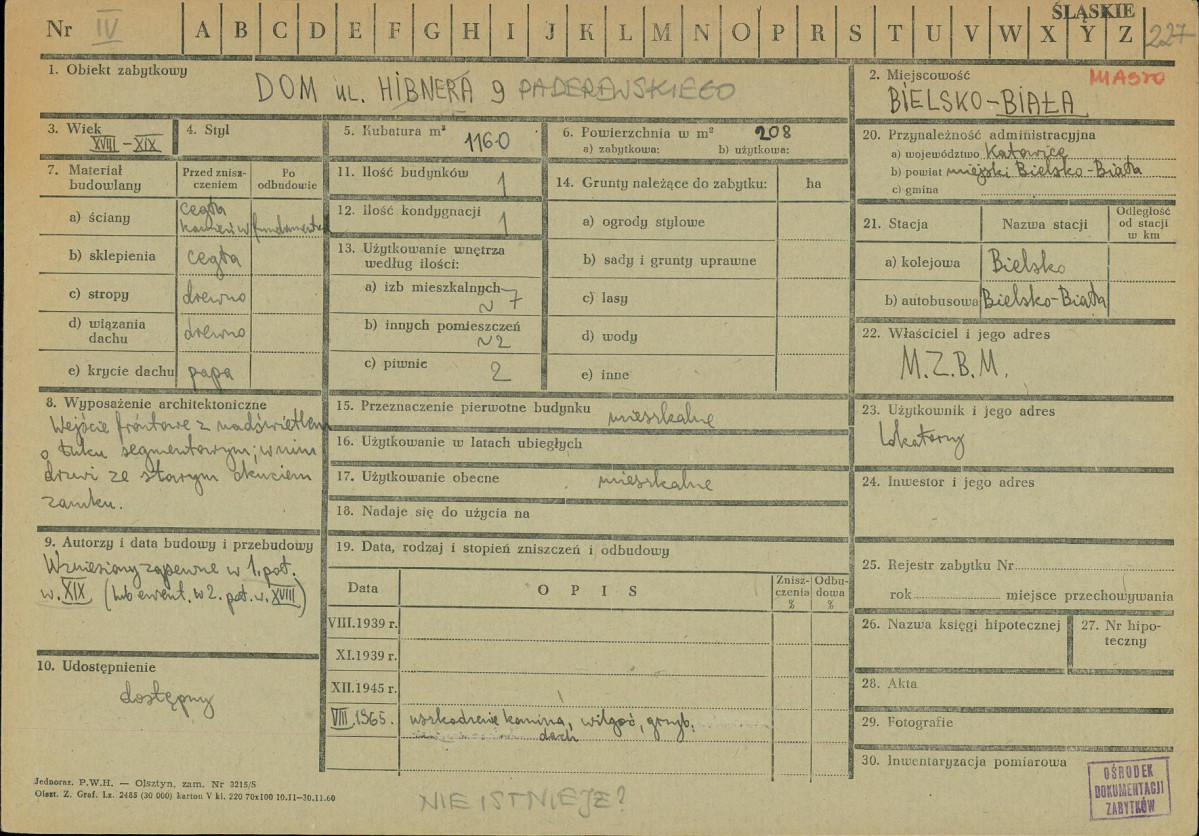 Nr IV A B C D E F G H I J K L M N O P R S T U V W X Y Z ŚLĄSKIE 227
1. Obiekt zabytkowy
DOM ul. HIBNERA 9 PADEREWSKIEGO
2. Miejscowość MIASTO
BIELSKO-BIAŁA
3. Wiek
XVIII-XIX
4. Styl
5. Kubatura m³
1160
6. Powierzchnia w m² 208
a) zabytkowa: b) użytkowa:
20. Przynależność administracyjna
a) województwo Katowice
b) powiat miejski Bielsko-Biała
c) gmina
7. Materiał budowlany
Przed zniszczeniem
Po odbudowie
a) ściany cegła
kamień w fundamentach
b) sklepienia cegła
c) stropy drewno
d) wiązania dachu drewno
e) krycie dachu papa
11. Ilość budynków 1
12. Ilość kondygnacji 1
13. Użytkowanie wnętrza
według ilości:
a) izb mieszkalnych
~ 7
b) innych pomieszczeń
~2
c) piwnic 2
14. Grunty należące do zabytku: ha
a) ogrody stylowe
b) sady i grunty uprawne
c) lasy
d) wody
e) inne
21. Stacja Nazwa stacji Odległość od stacji w km
a) kolejowa Bielsko
b) autobusowa Bielsko-Biała
22. Właściciel i jego adres
M.Z.B.M.
8. Wyposażenie architektoniczne
Wejście frontowe z nadświetlem
o łuku segmentowym; w nim
drzwi ze starym okuciem
zamku.
15. Przeznaczenie pierwotne budynku mieszkalne
16. Użytkowanie w latach ubiegłych
17. Użytkowanie obecne mieszkalne
18. Nadaje się do użycia na
23. Użytkownik i jego adres
Lokatorzy
24. Inwestor i jego adres
9. Autorzy i data budowy i przebudowy
Wzniesiony zapewne w 1. poł.
w. XIX (lub ewent. w 2. poł. w. XVIII)
19. Data, rodzaj i stopień zniszczeń i odbudowy
Data OPIS Zniszczenia % Odbudowa %
VIII.1939 r.
XI.1939 r.
XII.1945 r.
VIII.1965. uszkodzenie komina, wilgoć, grzyb,
dach
25. Rejestr zabytku Nr
rok miejsce przechowywania
26. Nazwa księgi hipotecznej
27. Nr hipoteczny
10. Udostępnienie
dostępny
28. Akta
29. Fotografie
30. Inwentaryzacja pomiarowa
OŚRODEK
DOKUMENTACJI
ZABYTKÓW
Jednoraz. P.W.H. — Olsztyn, zam. Nr 3215/S
Olszt. Z. Graf. Lz. 2485 (30 000) karton V kl. 220 70x100 10.11-30.11.60
NIE ISTNIEJE?